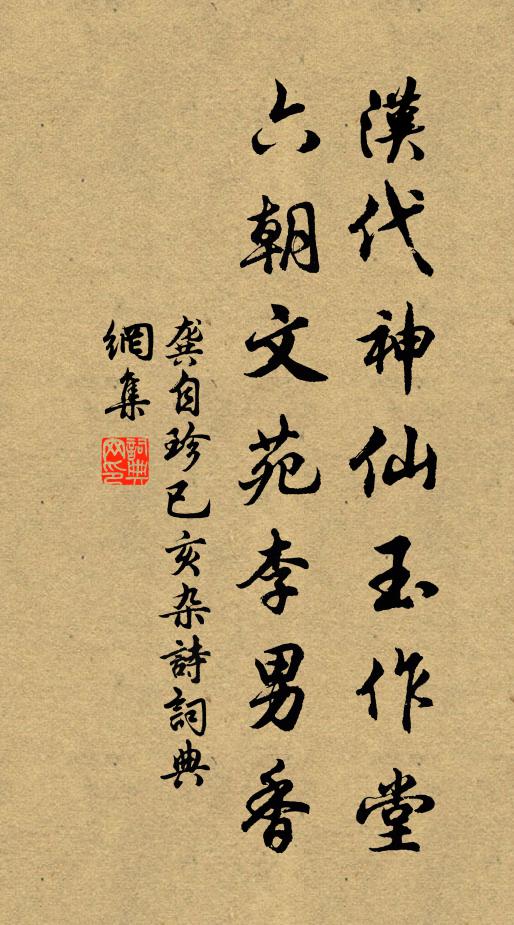 漢代神仙玉作堂
六朝文苑李男香
龔自珍已亥杂詩詞典
網集
詞典網印